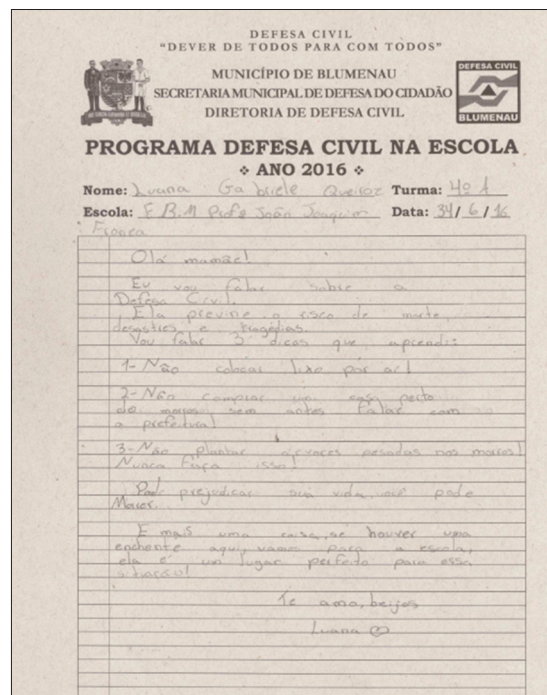 DEFESA CIVIL
"DEVER DE TODOS PARA COM TODOS"
MUNICÍPIO DE BLUMENAU
SECRETARIA MUNICIPAL DE DEFESA DO CIDADÃO
DIRETORIA DE DEFESA CIVIL
DEFESA CIVIL
BLUMENAU
PROGRAMA DEFESA CIVIL NA ESCOLA
❖ ANO 2016 ❖
Nome: Luana Gabriele Queiroz Turma: 4º 1
Escola: E.B.M Profº João Joaquim Data: 34/6/16
Fronza
Olá mamãe!
Eu vou falar sobre a
Defesa Civil.
Ela previne o risco de morte,
desastres e tragédias.
Vou falar 3 dicas que aprendi:
1- Não colocar lixo por ai!
2- Não comprar um casa perto
de morros sem antes falar com
a prefeitura!
3- Não plantar arvores pesadas nos morros!
Nunca faça isso!
Pode prejudicar sua vida, pode
Morrer.
E mais uma coisa, se houver uma
enchente aqui, vamos para a escola,
ela é um lugar perfeito para essa
situação!
Te amo, beijos
Luana